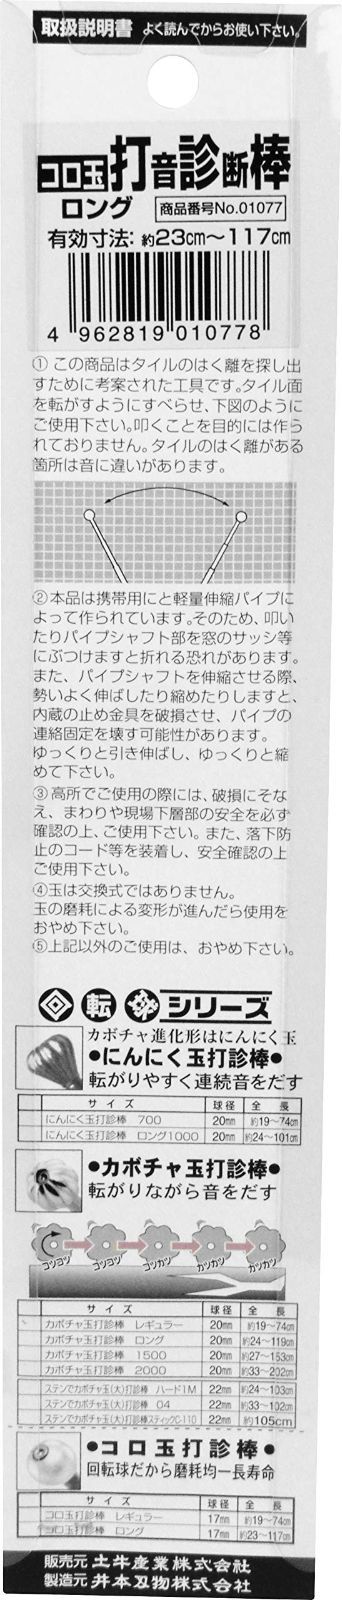 取扱説明書 よく読んでからお使い下さい。
コロ玉打音診断棒
ロング 商品番号No.01077
有効寸法：約23cm～117cm
4 962819 010778
① この商品はタイルのはく離を探し出
すために考案された工具です。タイル面
を転がすようにすべらせ、下図のように
ご使用下さい。叩くことを目的には作ら
れておりません。タイルのはく離がある
箇所は音に違いがあります。
②本品は携帯用にと軽量伸縮パイプに
よって作られています。そのため、叩い
たりパイプシャフト部を窓のサッシ等
にぶつけますと折れる恐れがあります。
また、パイプシャフトを伸縮させる際、
勢いよく伸ばしたり縮めたりしますと、
内蔵の止め金具を破損させ、パイプの
連絡固定を壊す可能性があります。
ゆっくりと引き伸ばし、ゆっくりと縮
めて下さい。
③高所でご使用の際には、破損にそな
え、まわりや現場下層部の安全を必ず
確認の上、ご使用下さい。また、落下防
止のコード等を装着し、安全確認の上
ご使用下さい。
④玉は交換式ではありません。
玉の磨耗による変形が進んだら使用を
おやめ下さい。
⑤上記以外のご使用は、おやめ下さい。
転 シリーズ
カボチャ進化形はにんにく玉
●にんにく玉打診棒●
転がりやすく連続音をだす
サイズ 球径 全長
にんにく玉打診棒 700 20mm 約19～74cm
にんにく玉打診棒 ロング1000 20mm 約24～101cm
●カボチャ玉打診棒●
転がりながら音をだす
コツコツ コツコツ コツカツ カツカツ カツカツ
サイズ 球径 全長
カボチャ玉打診棒 レギュラー 20mm 約19～74cm
カボチャ玉打診棒 ロング 20mm 約24～119cm
カボチャ玉打診棒 1500 20mm 約27～153cm
カボチャ玉打診棒 2000 20mm 約33～202cm
ステンでカボチャ玉(大)打診棒 ハード1M 22mm 約24～103cm
ステンでカボチャ玉(大)打診棒 04 22mm 約33～102cm
ステンでカボチャ玉(大)打診棒スティックC-110 22mm 約105cm
●コロ玉打診棒●
回転球だから磨耗均一長寿命
サイズ 球径 全長
コロ玉打診棒 レギュラー 17mm 約19～74cm
コロ玉打診棒 ロング 17mm 約23～117cm
販売元 土牛産業株式会社
製造元 井本刃物株式会社